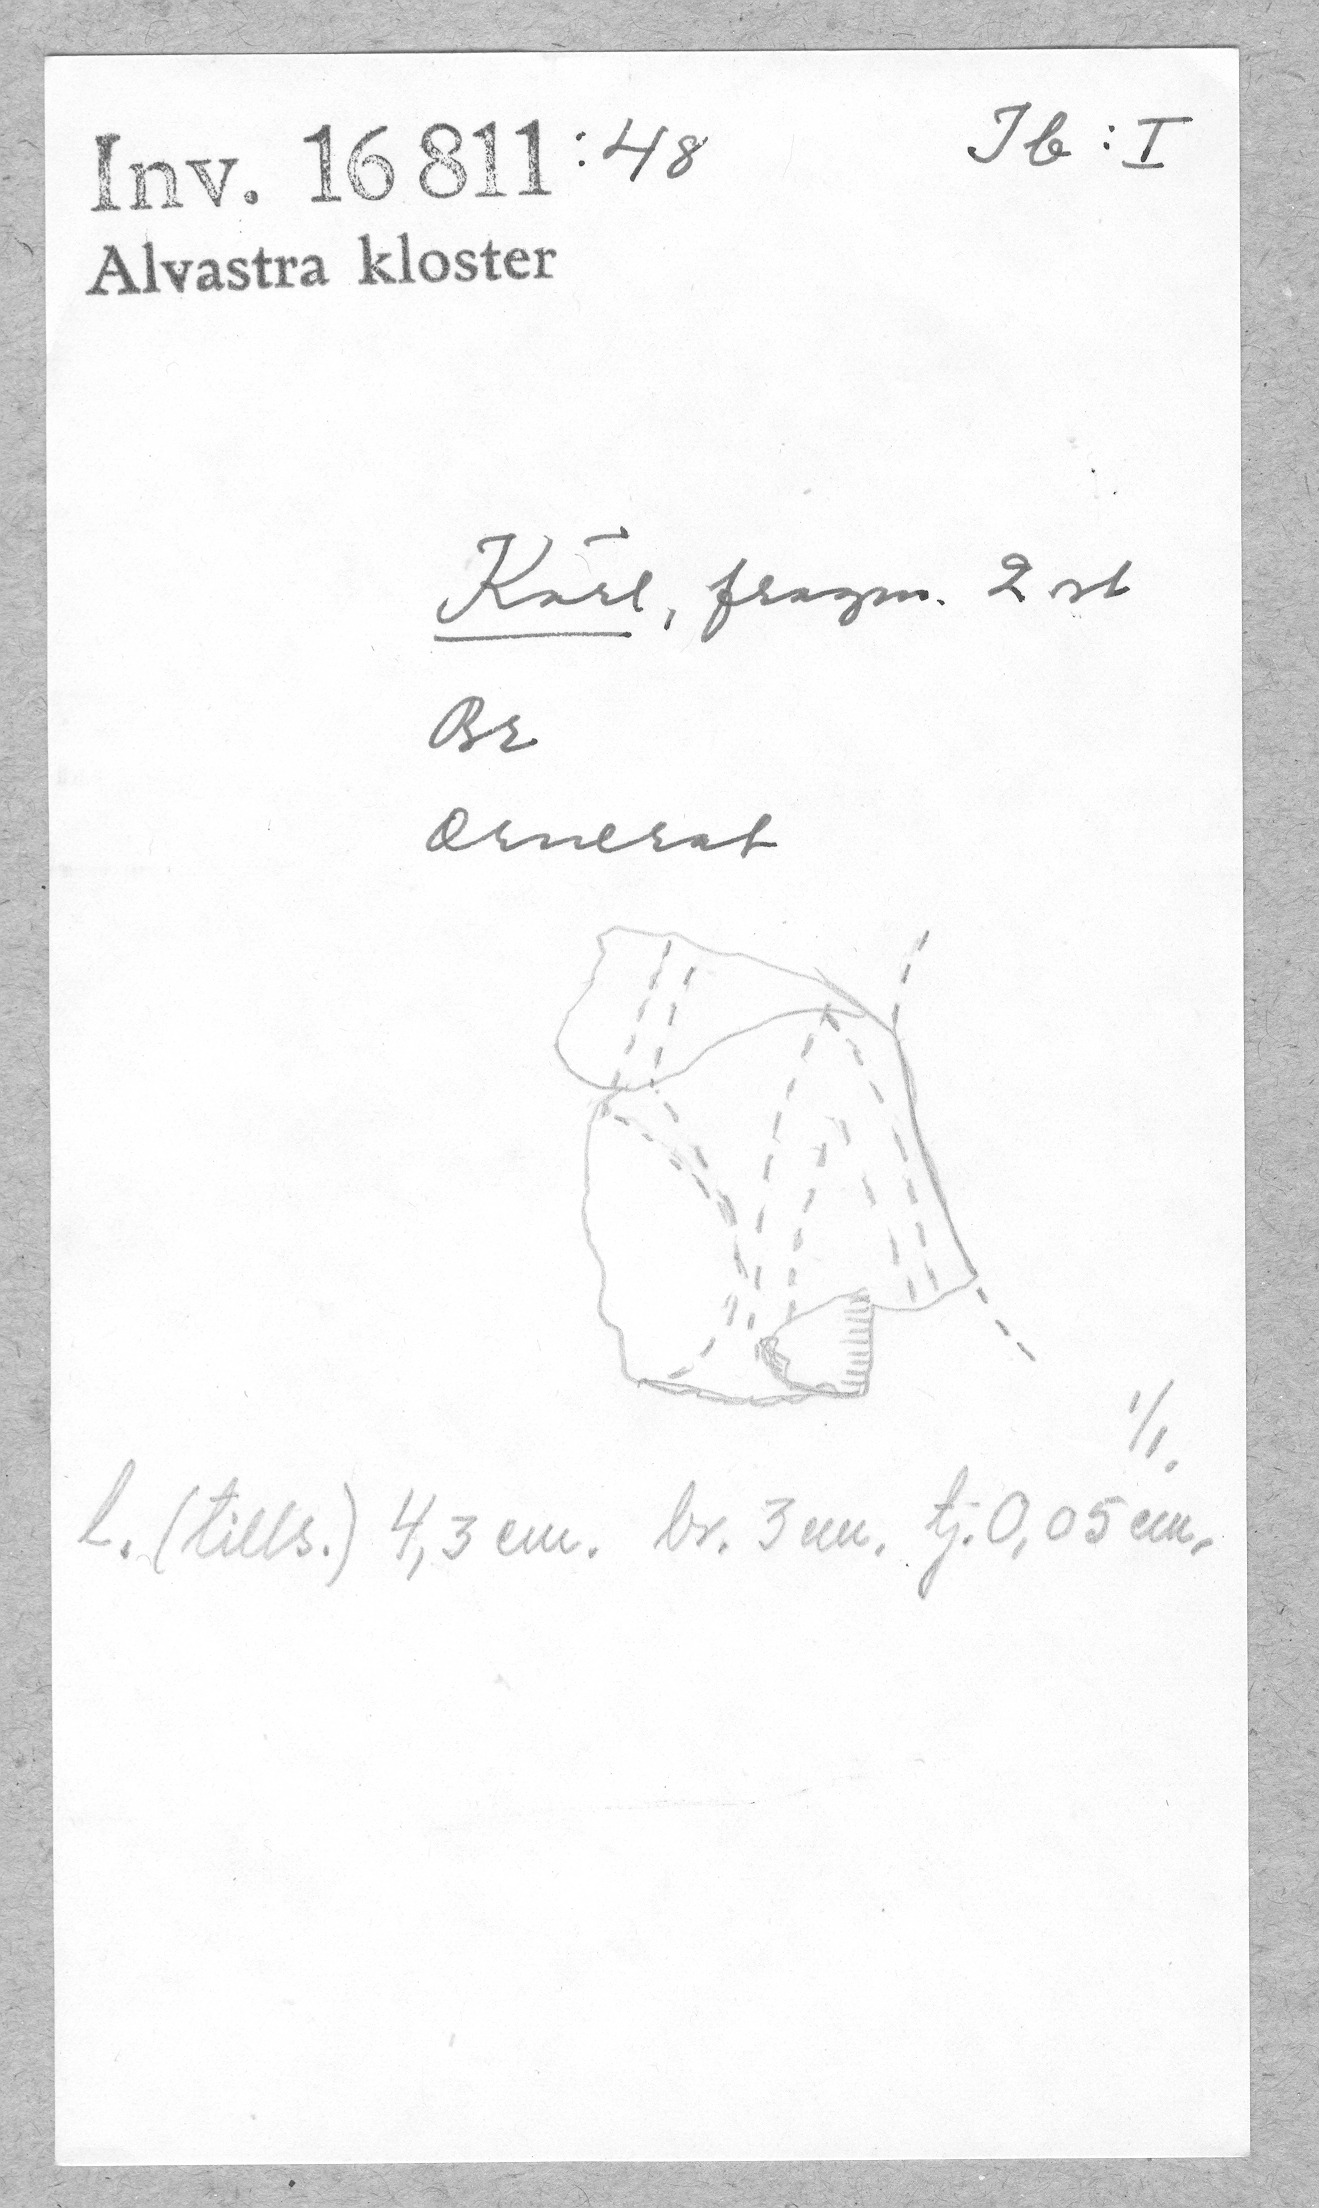 Inv. 16811:48 Ib:I
Alvastra kloster
Kärl, fragm. 2 st
Br
Ornerat
1/1.
L. (tills.) 4,3 cm. br. 3 cm. tj. 0,05 cm.